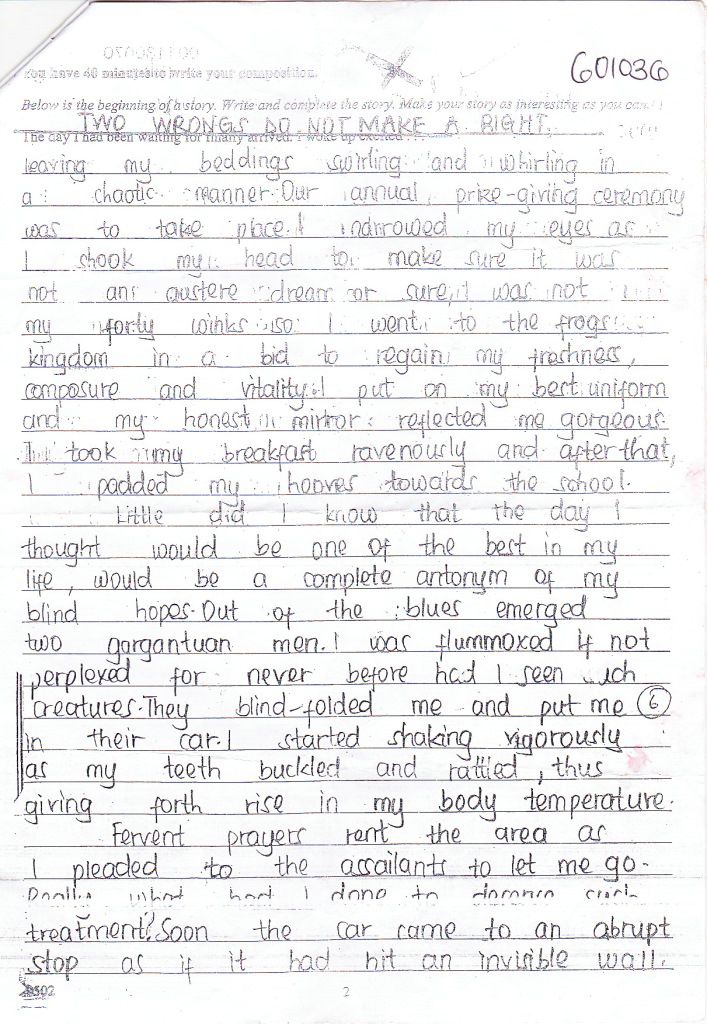 You have 40 minutes to write your composition.
601036
Below is the beginning of a story. Write and complete the story. Make your story as interesting as you can.
TWO WRONGS DO NOT MAKE A RIGHT.
The day I had been waiting for finally arrived. I woke up excited
leaving my beddings swirling and whirling in
a chaotic manner. Our annual prize-giving ceremony
was to take place. I indrrowed my eyes as
I shook my head to make sure it was
not an austere dream or sure, it was not
my forty winks so I went to the frogs
kingdom in a bid to regain my freshness,
composure and vitality. I put on my best uniform
and my honest mirror reflected me gorgeous.
I took my breakfast ravenously and after that,
I padded my hooves towards the school.
Little did I know that the day I
thought would be one of the best in my
life, would be a complete antonym of my
blind hopes. Out of the blues emerged
two gargantuan men. I was flummoxed if not
perplexed for never before had I seen such
creatures. They blind-folded me and put me
6
in their car. I started shaking vigorously
as my teeth buckled and rattled, thus
giving forth rise in my body temperature.
Fervent prayers rent the area as
I pleaded to the assailants to let me go.
Really what had I done to deserve such
treatment? Soon the car came to an abrupt
stop as if it had hit an invisible wall.
2